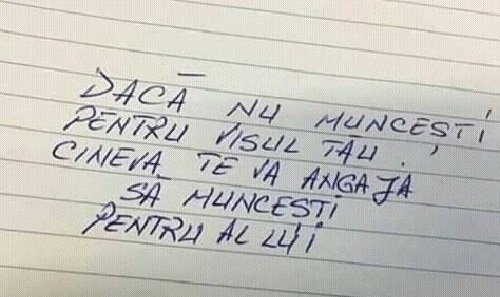 DACĂ NU MUNCEȘTI
PENTRU VISUL TĂU,
CINEVA TE VA ANGAJA
SĂ MUNCEȘTI
PENTRU AL LUI